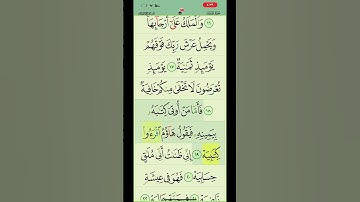 وَالْمَلَكُ عَلَىٰ أَرْجَائِهَا
وَيَحْمِلُ عَرْشَ رَبِّكَ فَوْقَهُمْ
يَوْمَئِذٍ ثَمَٰنِيَةٌ ١٧ يَوْمَئِذٍ
تُعْرَضُونَ لَا تَخْفَىٰ مِنكُمْ خَافِيَةٌ
١٨ فَأَمَّا مَنْ أُوتِيَ كِتَٰبَهُ
بِيَمِينِهِ فَيَقُولُ هَاؤُمُ اقْرَءُوا
كِتَٰبِيَهْ ١٩ إِنِّي ظَنَنتُ أَنِّي مُلَٰقٍ
حِسَابِيَهْ ٢٠ فَهُوَ فِي عِيشَةٍ